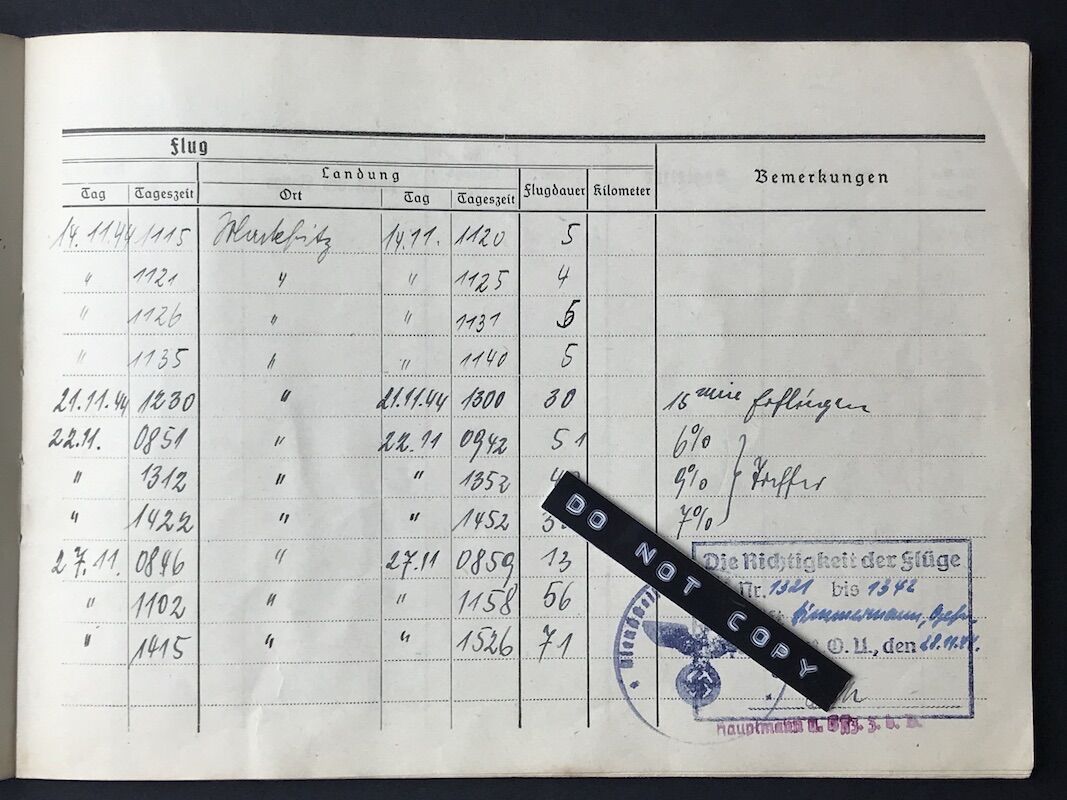 Flug
Landung
Bemerkungen
Tag Tageszeit Ort Tag Tageszeit Flugdauer Kilometer
14.11.44 1115 14.11. 1120 5
" 1121 " " 1125 4
" 1126 " " 1131 5
" 1135 " " 1140 5
21.11.44 1230 " 21.11.44 1300 30 15
22.11. 0851 " 22.11 0942 51 6%
" 1312 " " 1352 9% Treffer
" 1422 " " 1452 7%
27.11. 0846 " 27.11 0859 13
" 1102 " " 1158 56
" 1415 " " 1526 71
DO NOT COPY
Die Richtigkeit der Flüge
Nr. 1321 bis 1342
Zimmermann, Gefr.
O.U., den 28.11.44.
Hauptmann u. Offz. z. b. V.